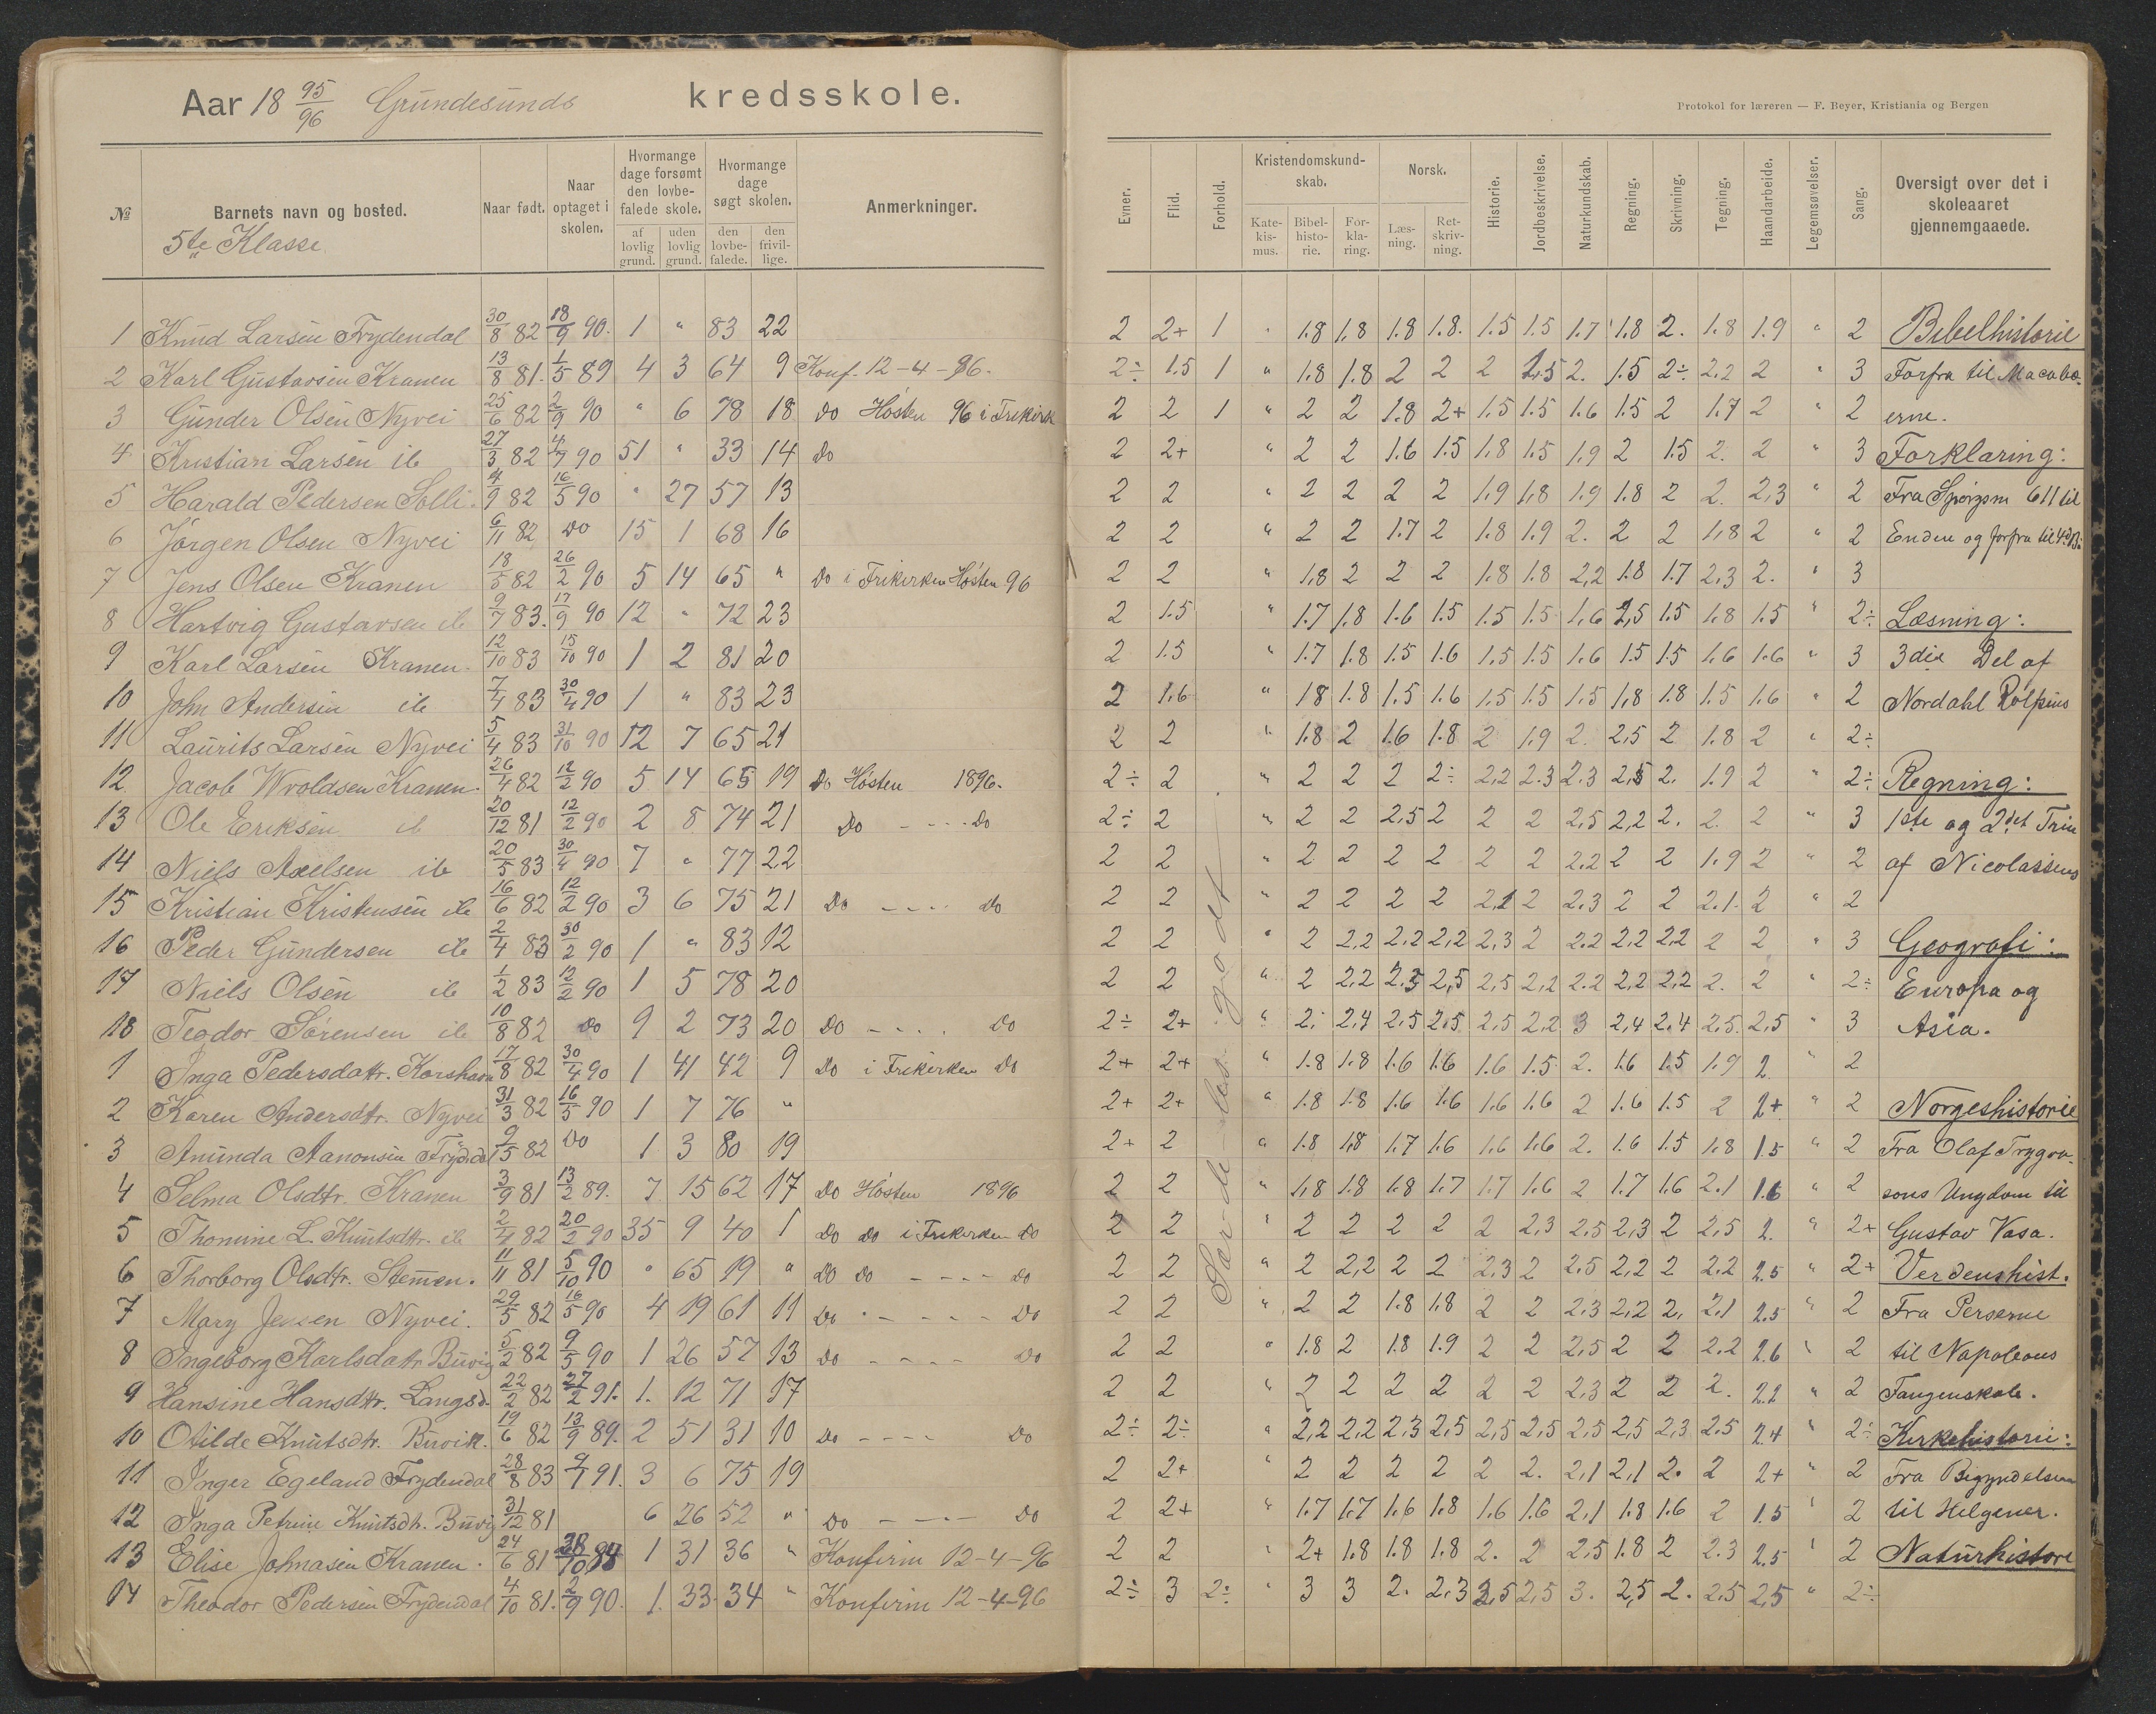 Aar 18 95/96 Grundesunds kredsskole.
Protokol for læreren — F. Beyer, Kristiania og Bergen
№ Barnets navn og bosted. Naar født. Naar optaget i skolen. Hvormange dage forsømt den lovbefalede skole. af lovlig grund. uden lovlig grund. Hvormange dage søgt skolen. den lovbefalede. den frivillige. Anmerkninger.
Evner. Flid. Forhold. Kristendomskundskab. Katekismus. Bibelhistorie. Forklaring. Norsk. Læsning. Retskrivning. Historie. Jordbeskrivelse. Naturkundskab. Regning. Skrivning. Tegning. Haandarbeide. Legemsøvelser. Sang. Oversigt over det i skoleaaret gjennemgaaede.
5te Klasse
1 Knud Larsen Frydendal 30/8 82 18/9 90. 1 " 83 22
2 Karl Gustavsen Kranen 13/8 81. 1/5 89 4 3 64 9 Konf. 12-4-96.
3 Gunder Olsen Nyvei 25/6 82 2/9 90 " 6 78 18 do Høsten 96 i Frikirk
4 Kristian Larsen ib 27/3 82 4/7 90 51 " 33 14 do
5 Harald Pedersen Solli. 4/9 82 16/5 90 " 27 57 13
6 Jørgen Olsen Nyvei 6/11 82 do 15 1 68 16
7 Jens Olsen Kranen 18/5 82 26/2 90 5 14 65 " do i Frikirken Høsten 96
8 Hartvig Gustavsen ib 9/7 83. 17/9 90 12 " 72 23
9 Karl Larsen Kranen. 12/10 83 15/10 90 1 2 81 20
10 John Andersen ib 7/4 83 30/4 90 1 " 83 23
11 Laurits Larsen Nyvei 5/4 83 31/10 90 12 7 65 21
12. Jacob Wroldsen Kranen. 26/4 82 12/2 90 5 14 65 19 do Høsten 1896.
13 Ole Eriksen ib 20/12 81 12/2 90 2 8 74 21 do - - - do
14 Niels Axelsen ib 20/5 83 30/4 90 7 " 77 22
15 Kristian Kristensen ib 16/6 82 12/2 90 3 6 75 21 do - - - - do
16 Peder Gundersen ib 2/4 83 30/2 90 1 " 83 12
17 Niels Olsen ib 1/2 83 12/2 90 1 5 78 20
18 Teodor Sørensen ib 10/8 82 do 9 2 73 20 do - - - . do
1 Inga Pedersdatr. Korshavn 17/8 82 30/4 90 1 41 42 9 do i Frikirken do
2 Karen Andersdtr. Nyvei 31/3 82 16/5 90 1 7 76 "
3 Anunda Aanonsen Frydndal 9/5 82 do 1 3 80 19
4 Selma Olsdtr. Kranen 3/9 81 13/2 89. 7 15 62 17 do Høsten 1896
5 Thomine L. Knutsdtr. ib 2/4 82 20/2 90 35 9 40 1 do do i Frikirken do
6 Thorborg Olsdtr. Stemmen. 11/11 81 5/10 90 " 65 19 " do do - - - - do
7 Mary Jensen Nyvei. 29/5 82 16/5 90 4 19 61 11 do - - - - do
8 Ingeborg Karlsdatr Buvig 5/2 82 9/5 90 1 26 57 13 do - - - - do
9 Hansine Hansdtr. Langsd. 22/2 82 27/2 91. 1. 12 71 17
10 Otilde Knutsdtr. Buvik. 19/6 82 13/9 89. 2 51 31 10 do - - - - do
11 Inger Egeland Frydendal 28/8 83 9/7 91. 3 6 75 19
12 Inga Petrine Knutsdtr. Buvig 31/12 81 6 26 52 " do - - - do
13 Elise Johnasen Kranen. 24/6 81 1 31 36 " Konfirm 12-4-96
14 Theodor Pedersen Frydendal 4/10 81. 2/9 90. 1. 33 34 " Konfirm 12-4-96
2 2+ 1 " 1.8 1.8 1.8 1.8. 1.5 1.5 1.7 1.8 2. 1.8 1.9 " 2 Bibelhistorie
2÷ 1.5 1 " 1.8 1.8 2 2 2 1.5 2. 1.5 2÷ 2.2 2 " 3 Forfra til Macabæ-
2 2 1 " 2 2 1.8 2+ 1.5 1.5 1.6 1.5 2 1.7 2 " 2 erne.
2 2+ " 2 2 1.6 1.5 1.8 1.5 1.9 2 1.5 2. 2 " 3 Forklaring:
2 2 " 2 2 2 2 1.9 1.8 1.9 1.8 2 2. 2,3 " 2 Fra Spørgsm 611 til
2 2 " 2 2 1.7 2 1.8 1.9 2. 2 2 1.8 2 " 2 Enden og forfra til 4d B.
2 2 " 1.8 2 2 2 1.8 1.8 2,2 1.8 1.7 2.3 2. " 3
2 1.5 " 1.7 1.8 1.6 1.5 1.5 1.5 1.6 1,5 1.5 1.8 1.5 " 2÷ Læsning:
2 1.5 " 1.7 1.8 1.5 1.6 1.5 1.5 1.6 1.5 1.5 1.6 1.6 " 3 3die Del af
2 1.6 " 1.8 1.8 1.5 1.6 1.5 1.5 1.5 1,8 1.8 1.5 1.6 " 2 Nordahl Rolfsens
2 2 " 1.8 2 1.6 1.8 2 1.9 2. 2,5 2 1.8 2 " 2÷
2÷ 2 " 2 2 2 2÷ 2,2 2.3 2.3 2,5 2. 1.9 2 " 2÷ Regning:
2÷ 2 " 2 2 2,5 2 2 2 2,5 2,2 2. 2. 2 " 3 1ste og 2det Trin
2 2 " 2 2 2 2 2 2 2.2 2 2 1.9 2 " 2 af Nicolaisens
2 2 " 2 2 2 2 2,1 2 2.3 2 2 2.1. 2 " 2
2 2 " 2 2,2 2,2 2,2 2,3 2 2.2 2,2 2,2 2 2 " 3 Geografi:
2 2 " 2 2,2 2.5 2,5 2,5 2,2 2.2 2,2 2,2 2. 2 " 2÷ Europa og
2÷ 2+ " 2. 2,4 2,5 2,5 2,5 2,2 3 2,4 2.4 2,5. 2,5 " 3 Asia.
2+ 2+ " 1.8 1.8 1.6 1.6 1.6 1.5 2. 1.6 1.5 1.9 2. " 2
2+ 2+ " 1.8 1.8 1.6 1.6 1.6 1.6 2 1.6 1.5 2 2+ " 2 Norgeshistorie
2+ 2 " 1.8 1.8 1.7 1.6 1.6 1.6 2. 1.6 1.5 1.8 1.5 " 2 Fra Olaf Trygva-
2 2 " 1.8 1.8 1.8 1.7 1.7 1.6 2 1.7 1.6 2.1 1.6 " 2 sons Ungdom til
2 2 " 2 2 2 2 2 2,3 2,5 2,3 2 2,5 2. " 2+ Gustav Vasa.
2 2 " 2 2,2 2 2 2.3 2 2.5 2,2 2 2.2 2.5 " 2+ Verdenshist.
2 2 " 2 2 1.8 1.8 2 2 2.3 2,2 2. 2.1 2.5 " 2 Fra Perserne
2 2 " 1.8 2 1.8 1.9 2 2 2,5 2 2 2.2 2.6 " 2 til Napoleons
2 2 " 2 2 2 2 2 2 2.3 2 2 2. 2.2 " 2 Fangenskab.
2÷ 2÷ " 2,2 2,2 2,3 2,5 2,5 2,5 2,5 2,5 2,3 2.5 2.4 " 2÷ Kirkehistorie:
2 2+ " 2 2 2 2 2 2. 2,1 2,1 2. 2 2+ " 2 Fra Begyndelsen
2 2+ " 1.7 1.7 1.6 1.8 1.6 1.6 2,1 1.8 1.6 2 1.5 " 2 til Helgener.
2 2 " 2+ 1.8 1.8 1.8 2. 2 2,5 1.8 2 2.3 2.5 " 2 Naturhistore
2÷ 3 2÷ " 3 3 2. 2.3 2,5 2,5 3. 2,5 2. 2,5 2,5 " 2÷
godt